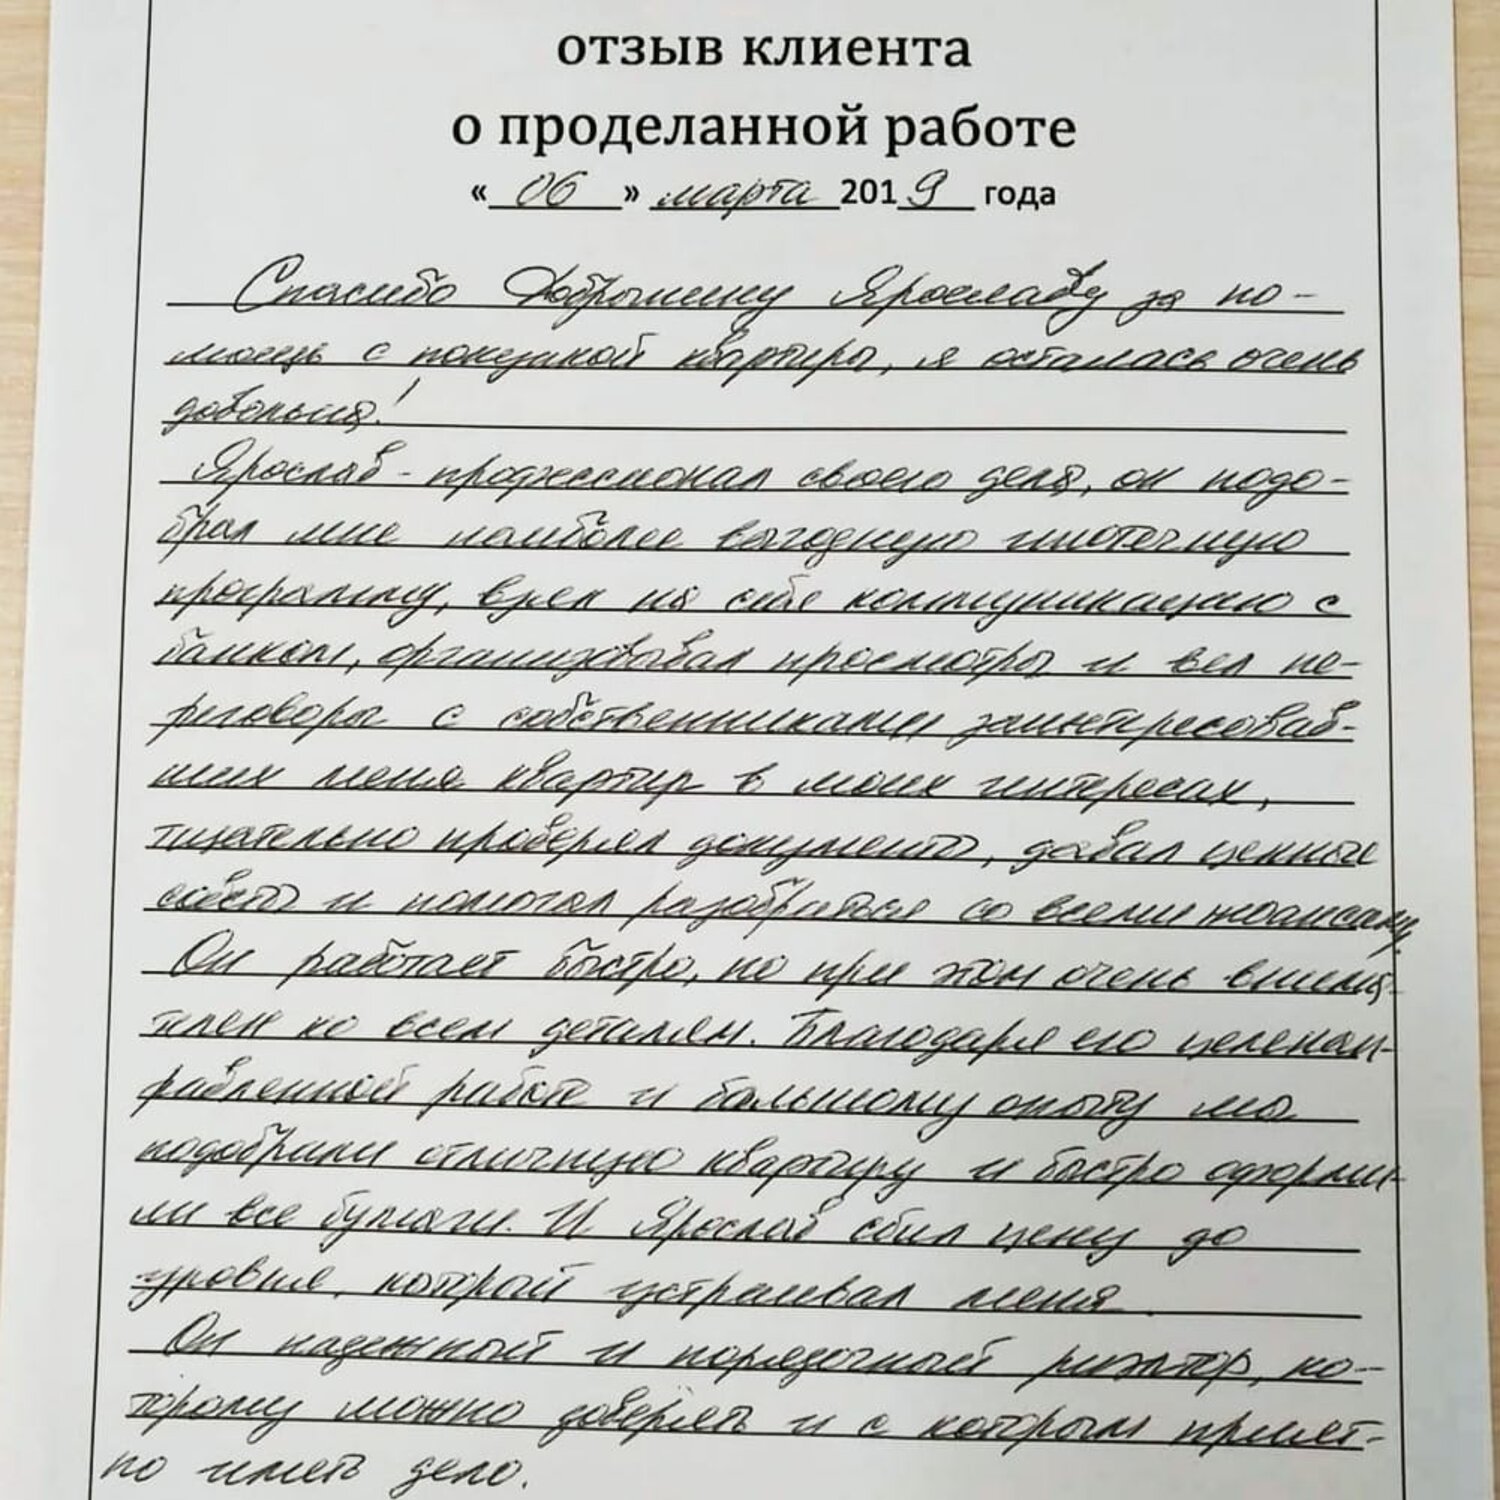 отзыв клиента
о проделанной работе
« 06 » марта 2019 года
Спасибо Ярославу за по-
мощь с покупкой квартиры, я осталась очень
довольна!
Ярослав - профессионал своего дела, он подо-
брал мне наиболее выгодную ипотечную
программу, взял на себя коммуникацию с
банком, организовывал просмотры и вел пе-
реговоры с собственниками заинтересовав-
ших меня квартир в моих интересах,
тщательно проверял документы, давал ценные
советы и помогал разобраться со всеми нюансами.
Он работает быстро, но при этом очень внима-
телен ко всем деталям. Благодаря его целенап-
равленной работе и большому опыту мы
подобрали отличную квартиру и быстро оформи-
ли все бумаги. И Ярослав сбил цену до
уровня, который устраивал меня.
Он надежный и порядочный риэлтор, ко-
торому можно доверять и с которым прият-
но иметь дело.